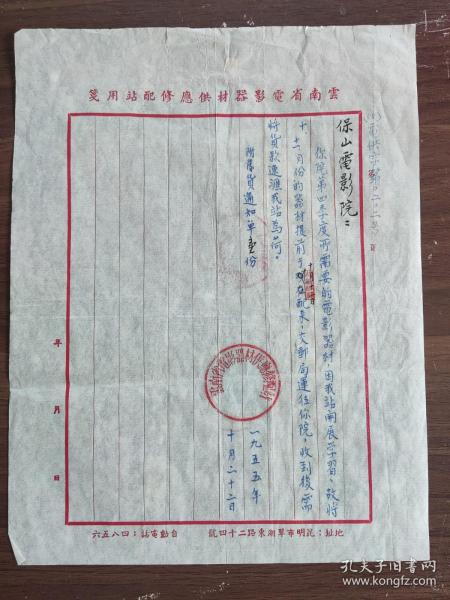 雲南省電影器材供應修配站用箋
保山電影院：
你院第四季度所需要的電影器材，因我站開展学習，故將
十、十一月份的器材提前于
配来，交郵局運往你院，收到後需
將貨款速滙我站為荷。
附售貨通知單壹份
一九五五年
十月二十二日
年 月 日
地址：昆明市翠湖東路二十四號
自動電話：四八五六
孔夫子旧书网